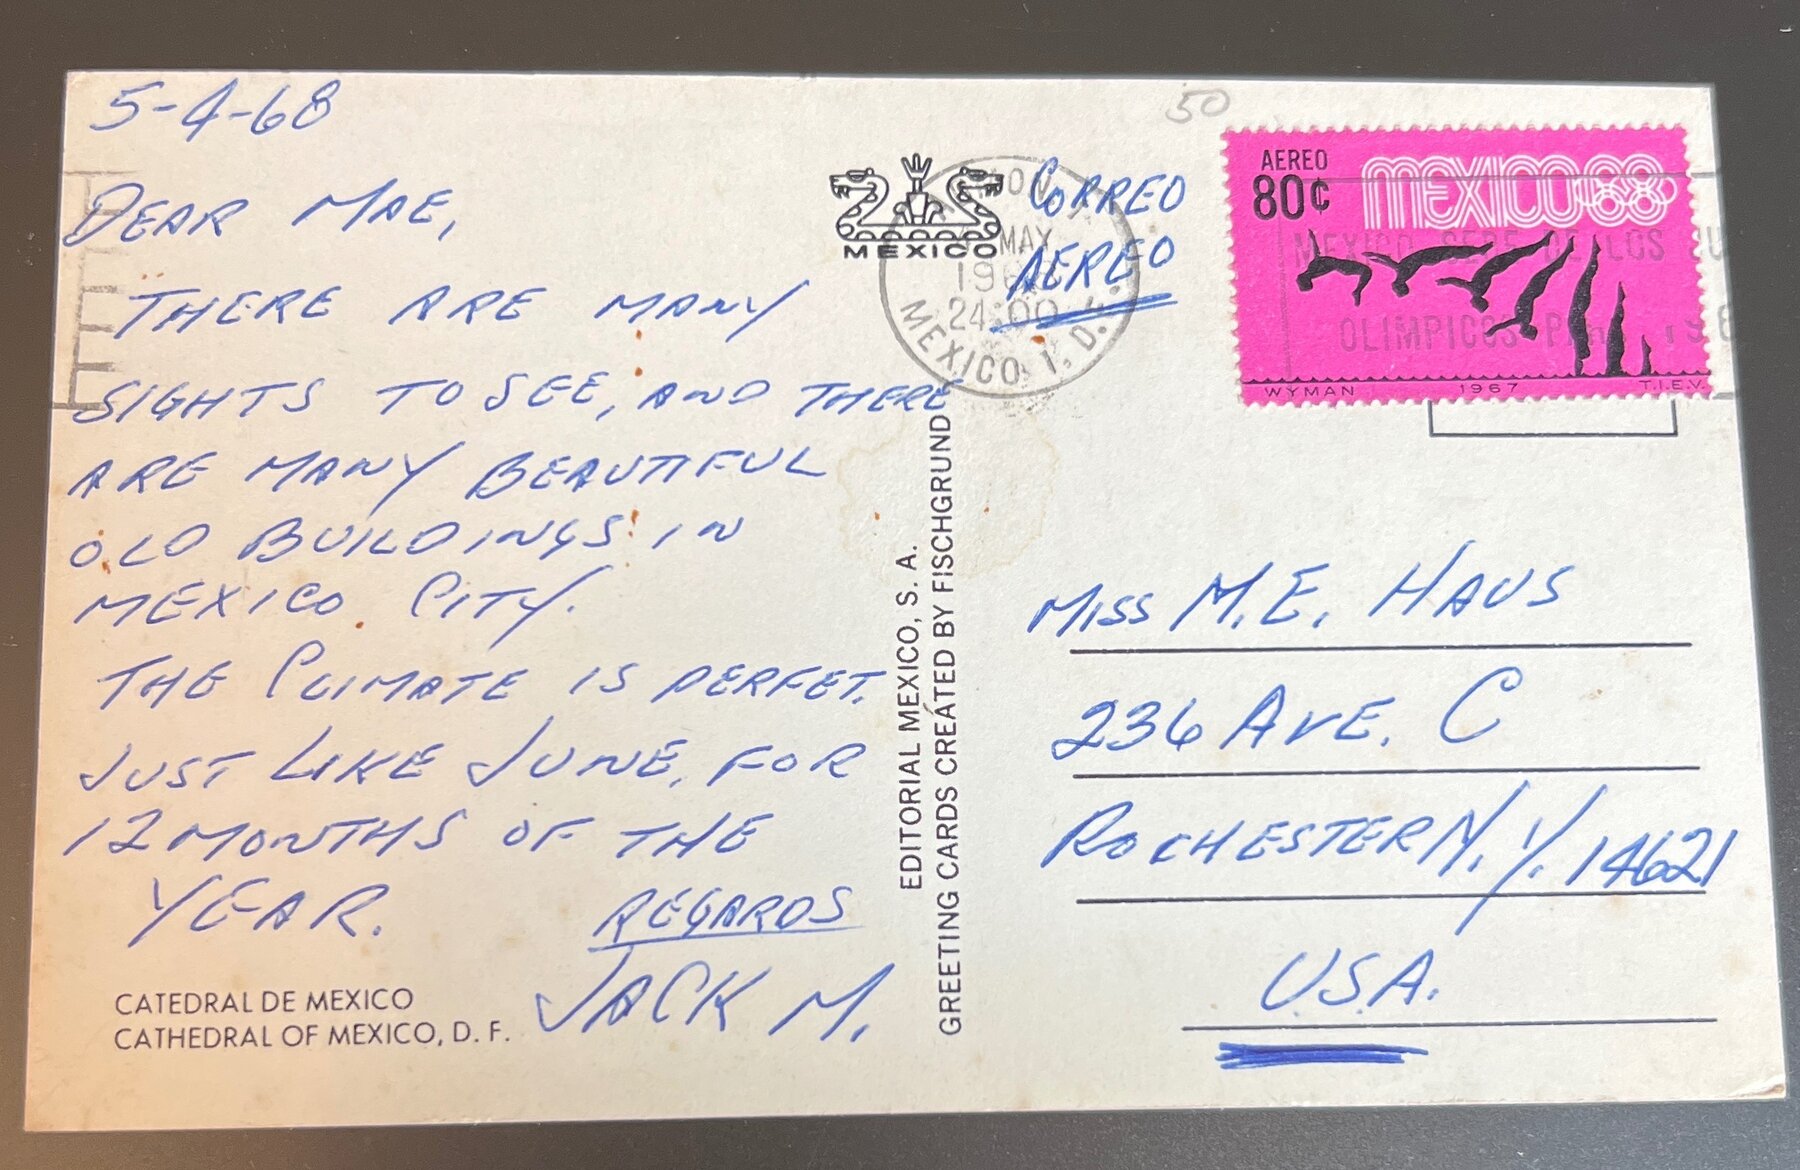 5-4-68
DEAR MAE,
THERE ARE MANY
SIGHTS TO SEE, AND THERE
ARE MANY BEAUTIFUL
OLD BUILDINGS IN
MEXICO CITY.
THE CLIMATE IS PERFET.
JUST LIKE JUNE, FOR
12 MONTHS OF THE
YEAR. REGARDS
JACK M.
CATEDRAL DE MEXICO
CATHEDRAL OF MEXICO, D. F.
EDITORIAL MEXICO, S. A.
GREETING CARDS CREATED BY FISCHGRUND
MEXICO
MAY
24:00
MEXICO 1, D.
50
CORREO
AEREO
AEREO
80¢
MEXICO68
MEXICO SEDE DE LOS
OLIMPICOS
WYMAN 1967 T.I.E.V.
MISS M.E. HAUS
236 AVE. C
ROCHESTER N.Y. 14621
U.S.A.